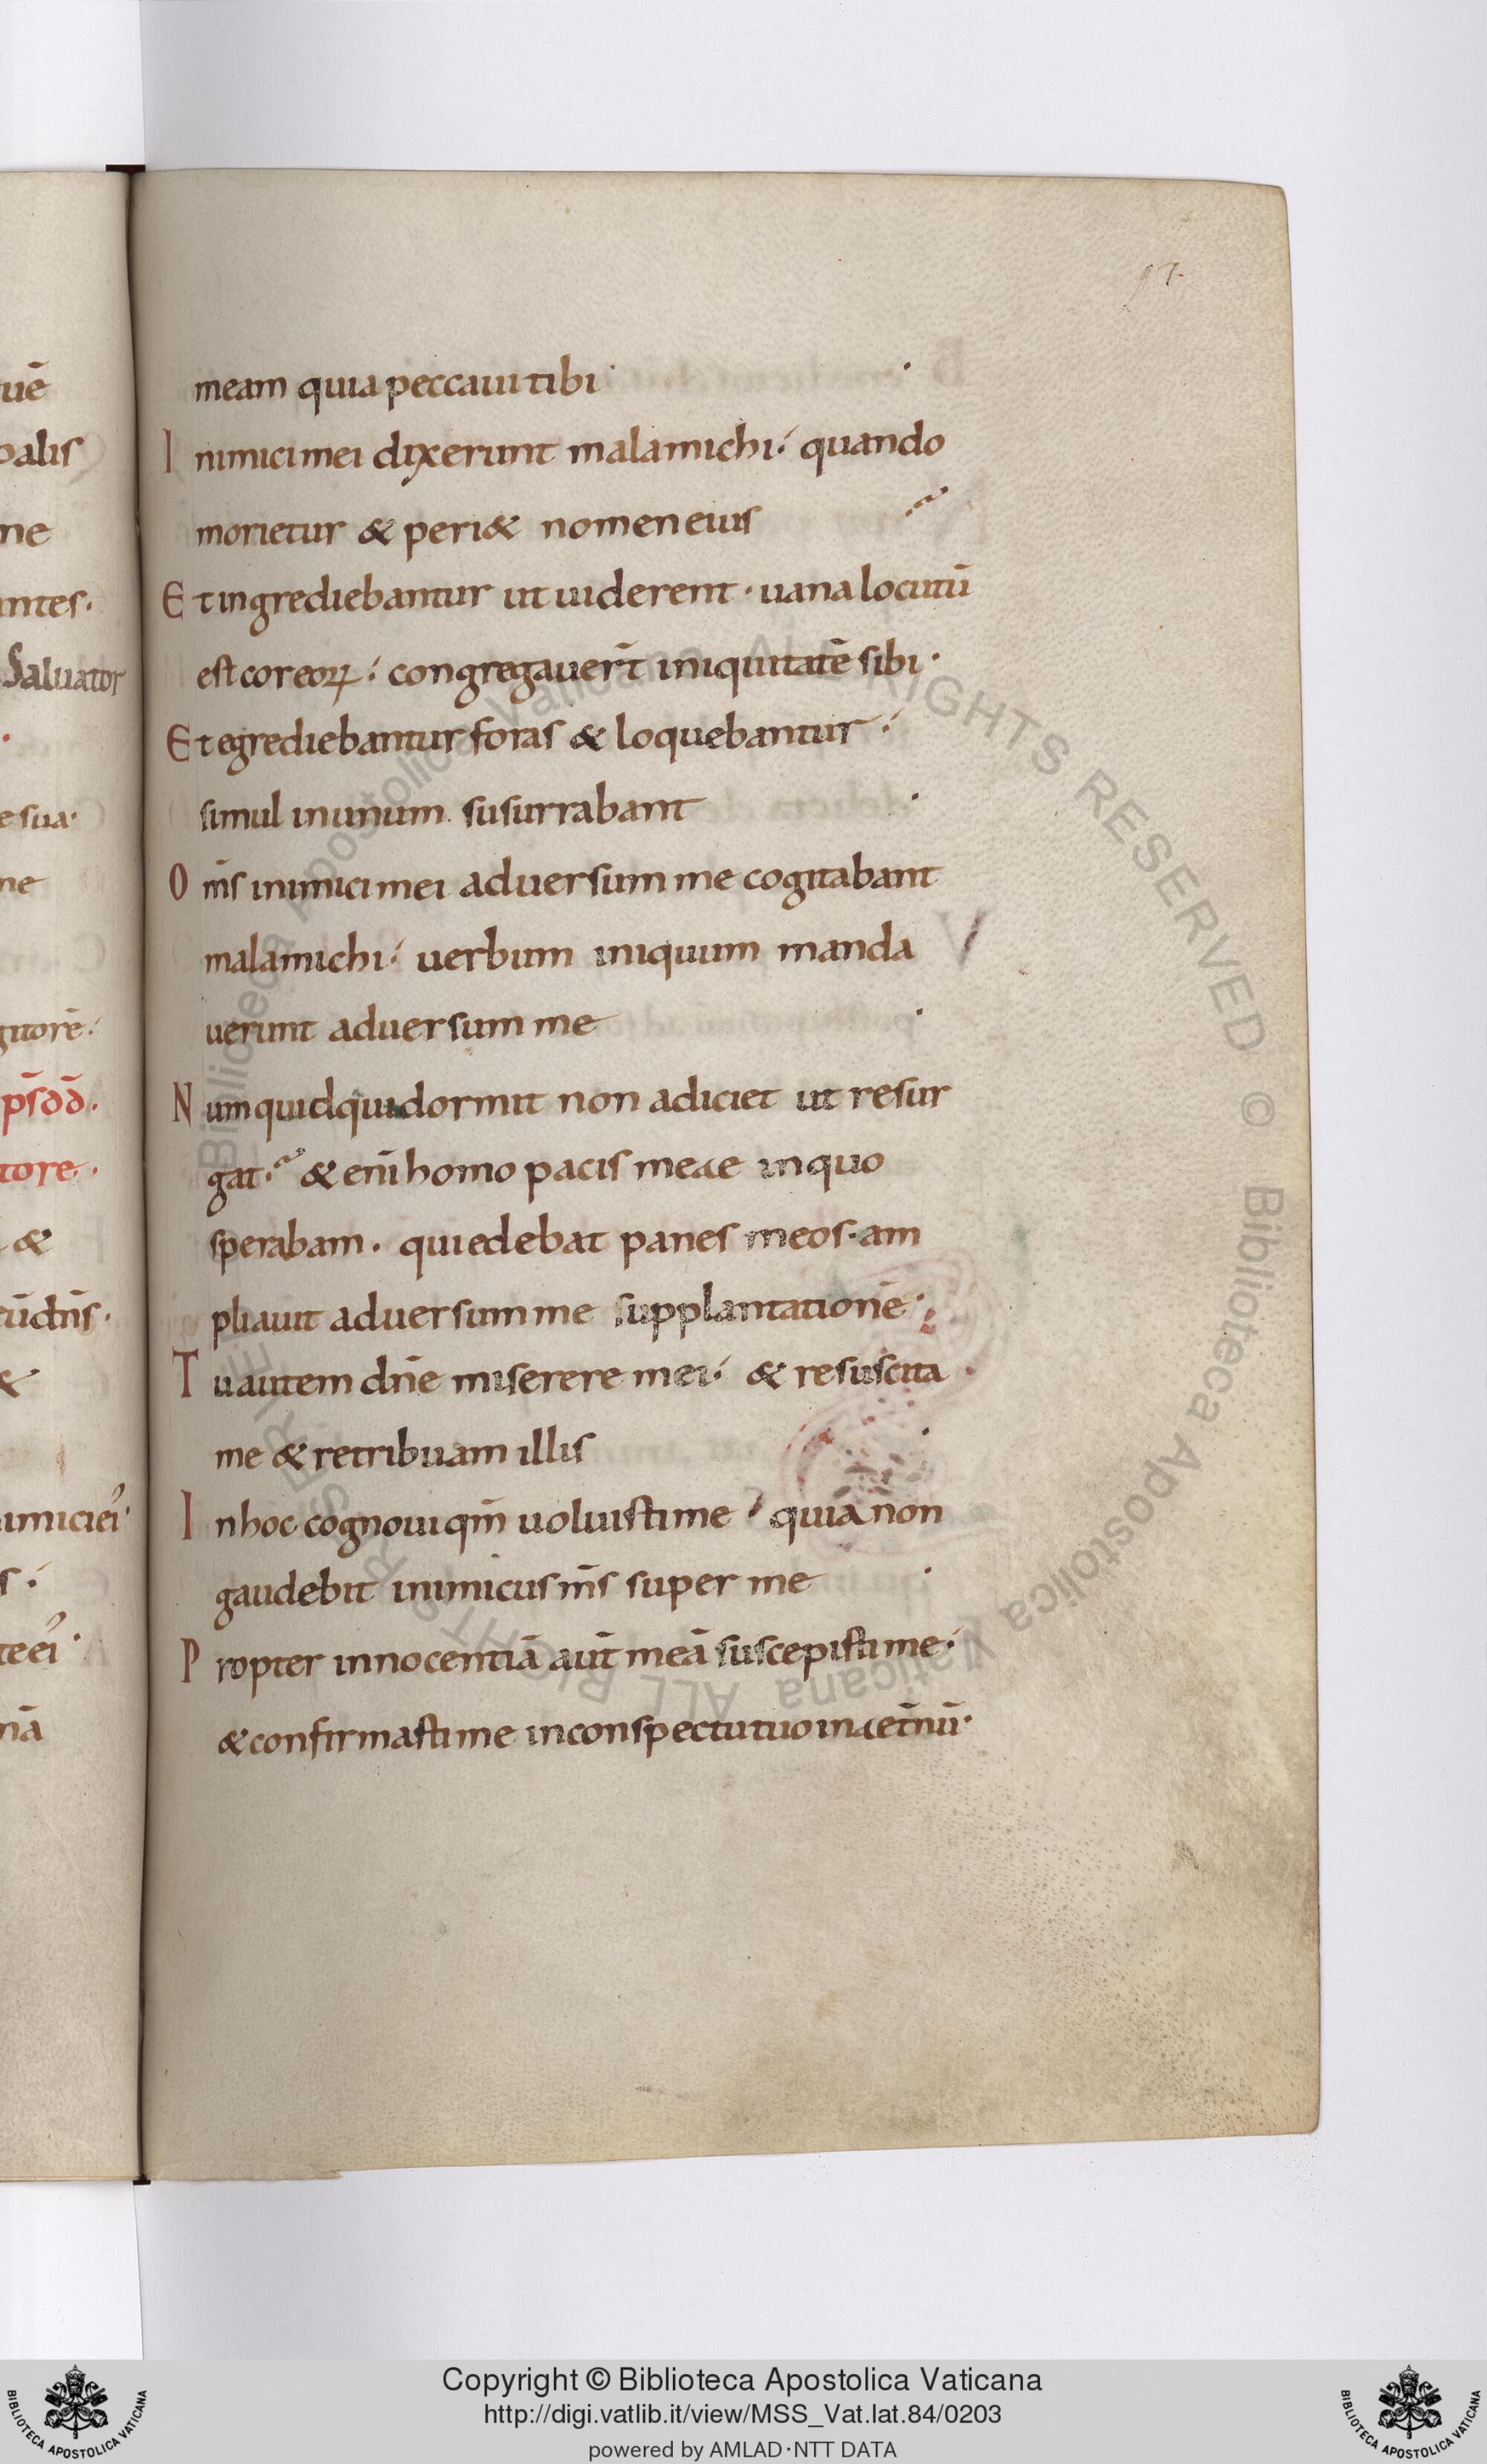 uē
palis
ne
ntes.
Saluator
e sua.
ne
gitorē.
pſ̄dd̄.
tore.
&
dn̄s.
&
imiciei
s.
teei
nā
97
meam quia peccaui tibi
Inimici mei dixerunt mala michi. quando
morietur & peri& nomen eius
Et ingrediebantur ut uiderent. uana locutū
est cor eoꝝ. congregauer̄t iniquitatē sibi.
Et egrediebantur foras & loquebantur.
simul in unum susurrabant
Om̄s inimici mei aduersum me cogitabant
mala michi. uerbum iniquum manda
uerunt aduersum me
Numquid qui dormit non adiciet ut resur
gat. & eni̅ homo pacis meae in quo
sperabam. qui edebat panes meos. am
pliauit aduersum me supplantationē.
Tu autem dn̄e miserere mei. & resuscita
me & retribuam illis
In hoc cognoui qm̄ uoluisti me. quia non
gaudebit inimicus m̄s super me
Propter innocentiā aut̄ meā suscepisti me.
& confirmasti me in conspectu tuo in aet̄nū.
Biblioteca Apostolica Vaticana ALL RIGHTS RESERVED © Biblioteca Apostolica Vaticana ALL RIGHTS RESERVED
Copyright © Biblioteca Apostolica Vaticana
http://digi.vatlib.it/view/MSS_Vat.lat.84/0203
powered by AMLAD·NTT DATA
BIBLIOTECA APOSTOLICA VATICANA
BIBLIOTECA APOSTOLICA VATICANA